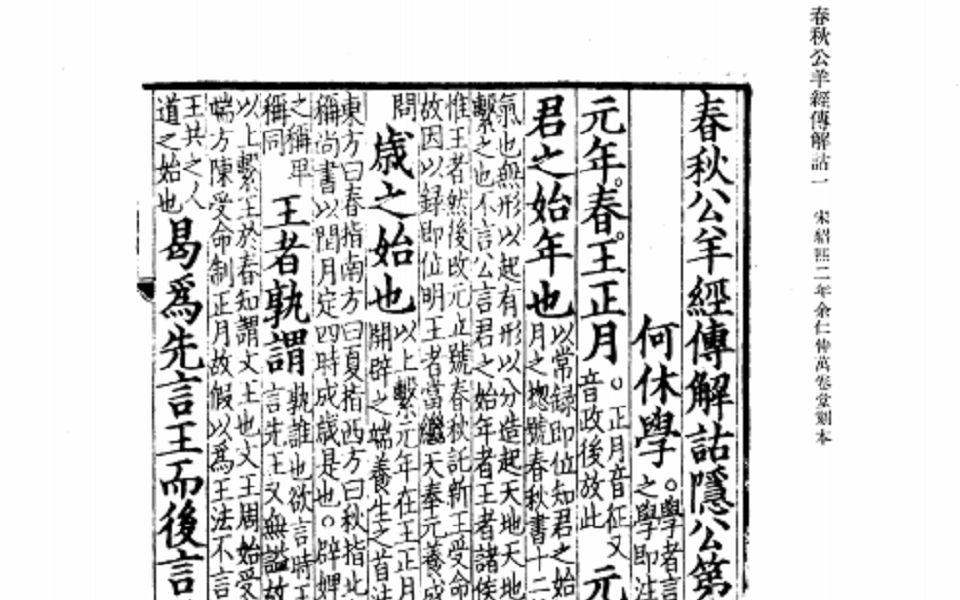 春秋公羊經傳解詁一 宋紹熙二年余仁仲萬卷堂刻本
春秋公羊經傳解詁隱公第
何休學 。學者言
之學即注
元年。春。王正月 。正月音征又
音政後放此 元
君之始年也 以常録即位知君之始
月之揔號春秋書十二
氣也無形以起有形以分造起天地天地
繫之也不言公言君之始年者王者諸侯
惟王者然後改元立號春秋託新王受命
故因以録即位明王者當繼天奉元養成
問 歲之始也 以上繫元年在王正月
開辟之端養生之首法
東方曰春指南方曰夏指西方曰秋指北
稱尚書以閏月定四時成歲是也。辟婢
之稱
稱同 王者孰謂 孰誰也欲言時王
言先王又無謚故
以上繫王於春知謂文王也文王周始受
端方陳受命制正月故假以爲王法不言
王共之人
道之始也 曷爲先言王而後言